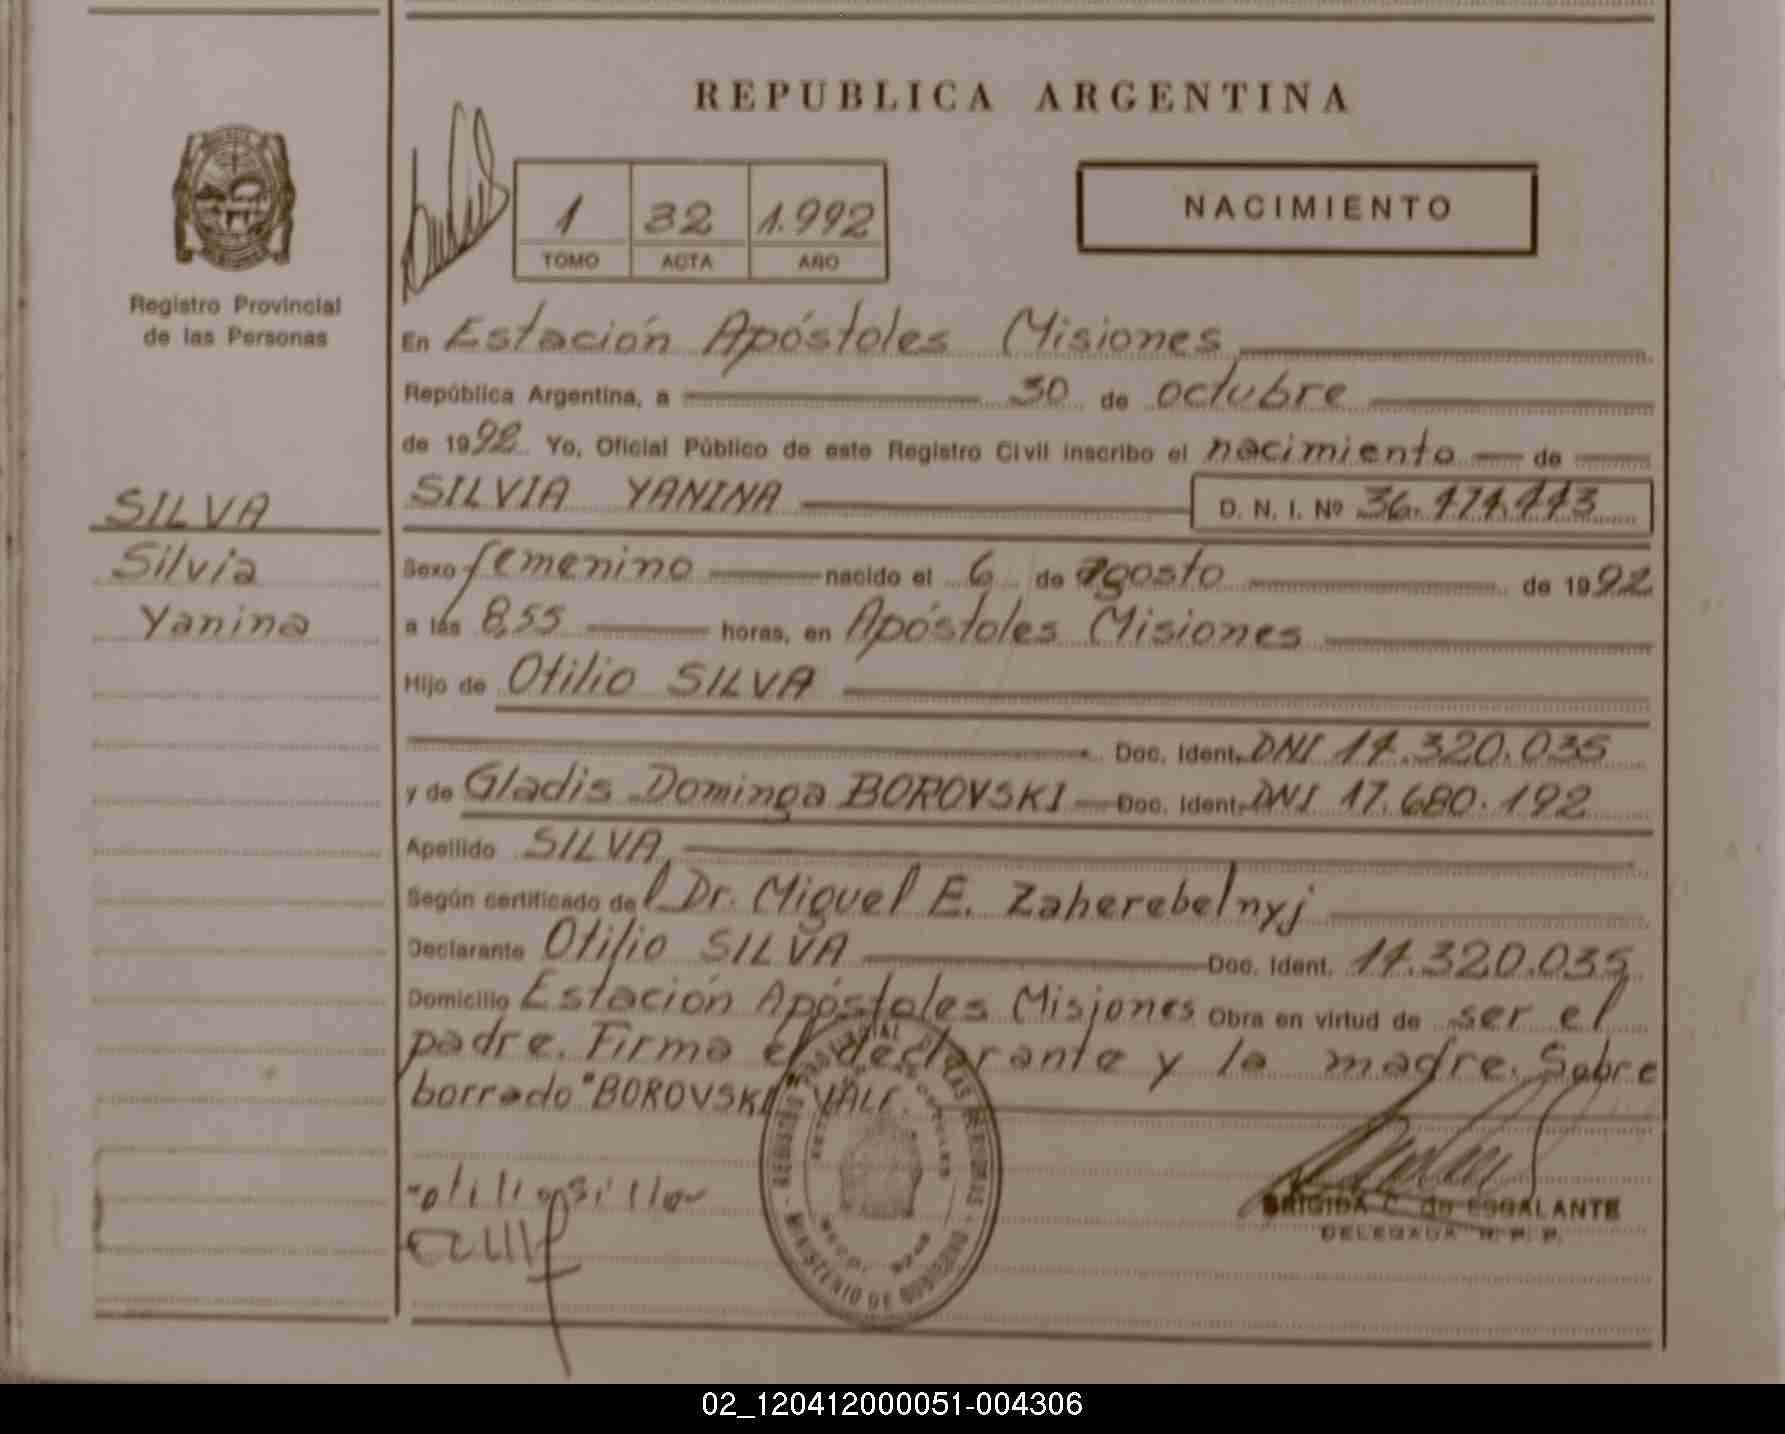 REPUBLICA ARGENTINA
NACIMIENTO
1 32 1.992
TOMO ACTA AÑO
Registro Provincial
de las Personas
En Estación Apóstoles Misiones
República Argentina, a 30 de octubre
de 1992. Yo, Oficial Público de este Registro Civil inscribo el nacimiento de
SILVA
SILVIA YANINA D. N. I. Nº
Silvia
Yanina
Sexo femenino nacido el 6 de agosto de 1992
a las 8,55 horas, en Apóstoles Misiones
Hijo de Otilio SILVA
Doc. Ident. DNI 14.320.035
y de Gladis Dominga BOROVSKI Doc. Ident. DNI 17.680.192
Apellido SILVA
Según certificado del Dr. Miguel E. Zaherebelnyj
Declarante Otilio SILVA Doc. Ident. 14.320.035
Domicilio Estación Apóstoles Misiones Obra en virtud de ser el
padre. Firma el declarante y la madre. Sobre
borrado "BOROVSKI" VALE.
REGISTRO PROVINCIAL DE LAS PERSONAS
MINISTERIO DE GOBIERNO
BRIGIDA C. de ESCALANTE
DELEGADA R. P. P.
02_120412000051-004306